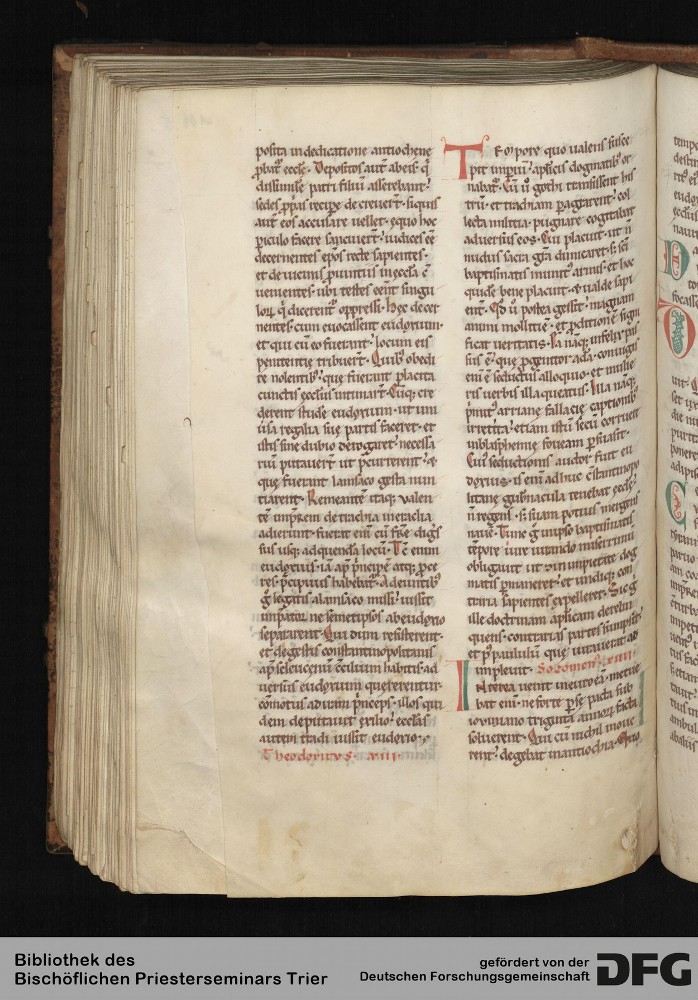 posita in dedicatione antiochene
ꝓbat᷒ eccle. Depositos aut̄ ab eis. q̄
dissimile patri filiū asserebant.
sedes ꝓpas recipe decreuert̄. siquis
aut̄ eos accusare uellet. equo hoc
ꝑiculo facere sancuert̄. iudices eē
decernentes epos recte sapientes.
et de uicinis ꝓuintiis in eccla ꝯ
uenientes. ubi testes eent singu
lorꝝ q̄ dicerent᷒ oppressi. Hec decer
nentes. cum euocassent eudoxium.
et qui cū eo fuerant. locum eis
penitentie tribuert̄. Quib᷒ obedi
re nolentib᷒. que fuerant placita
cunctis ecclesiis intimart̄. Cūq; cre
derent stude eudoxium. ut um
u̅sa regalia sue partis faceret. et
istis sine dubio derogaret. necessa
riū putauert̄ ut p̄currerent. et
que fuerant lamsaco gesta nun
tiarent. Remeante itaq; valen
te imp̄rem de trachia in eraclia
adierunt. fuerat eni cū
fus usq; ad quendā locū. Tc enim
eudoxius. ia ap̄ p̄ncipē atq; ꝓce
res. p̄cipuus habebat᷒. Adeuntib᷒
g̊ legatis a lamsaco missi. iussit
impator ne semetipsos ab eudoxio
separarent. Qui dum resisterent.
et de gestis constantinopolitanis
ap̄ seleuceniū ꝯcilium habitis. ad
uersus eudoxium quererentur.
cōmotus ad iram p̄nceps. illos qui
dem deputauit exilio. ecclesias
autem tradi iussit eudoxio.
Theodoritus. xiii.
Tempore quo ualens susce
pit impiū. aplicis dogmatib᷒ or
nabat᷒. Cū u̅ gothi transissent his
trū. et trachiam ꝑagrarent. col
lecta militia. pugnare cogitabat
aduersus eos. Cui placuit. ut n̄
nudus sacra gr̄a dimicaret. s; sc̄i
baptismatis munit᷒ armis. et hoc
quide bene placuit. et ualde sapi
ent. Qd̄ u̅ postea gessit. magnam
animi mollitiē. et ꝑditionē signi
ficat ueritatis. Ia naq; infelix pas
sus ē. que ꝓgenitor ada. coniugis
eni ē seductus alloquio. et mulie
ris uerbis illaqueatus. Illa naq;
prim᷒ arriane fallacie captionib᷒
irretita. etiam istū secū corruere
in blasphemie foueam ꝑsuasit.
Cui᷒ seductionis auctor fuit eu
doxius. is eni adhuc ꝯstantinopo
litane gubnacula tenebat eccle.
n̄ regens. s; suam potius mergens
nauē. Tunc g̊ in ipso baptismatis
tēpore iure iurando miserrimū
obligauit. ut et in impietate dog
matis ꝑmaneret. et undiq; con
traria sapientes expelleret. Sic g̊
ille doctrinam aplicam derelin
quens. contrarias partes sumpsit.
et p᷒ paululū que iurauerat ad
impleuit. Sozomen᷒. xiiii.
Interea uenit in euersē. metue
bat eni. ne forte ꝑ se pacta sub
iouiniano triginta annoꝝ facta
soluerent᷒. Qui cū nichil moue
rent᷒. degebat in antiochia. Quo
Bibliothek des
Bischöflichen Priesterseminars Trier
gefördert von der
Deutschen Forschungsgemeinschaft
DFG